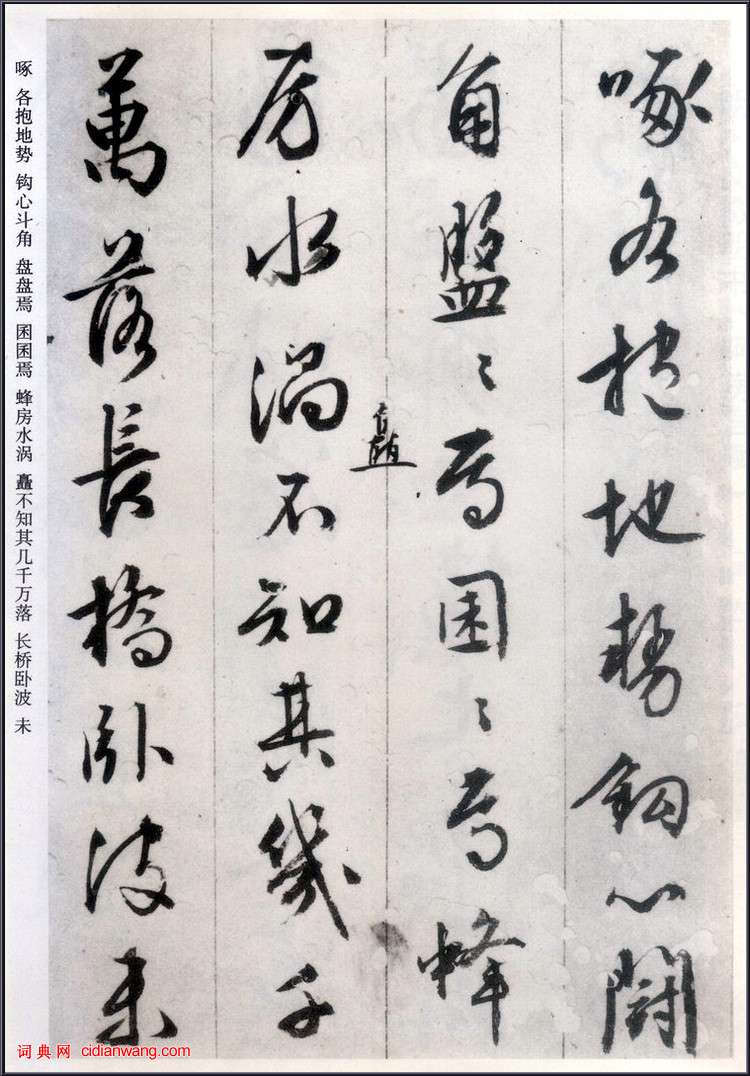 啄各抱地勢鈎心闘
角盤〻焉囷〻焉蜂
矗
房水渦不知其幾千
萬落長橋卧波未
啄 各抱地势 钩心斗角 盘盘焉 囷囷焉 蜂房水涡 矗不知其几千万落 长桥卧波 未
词典网 cidianwang.com